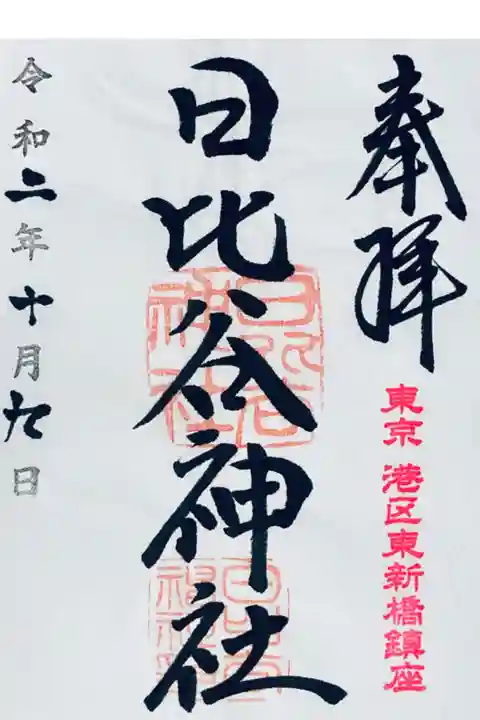 奉拝
東京 港区東新橋鎮座
日比谷神社
令和二年十月九日
日比谷神社